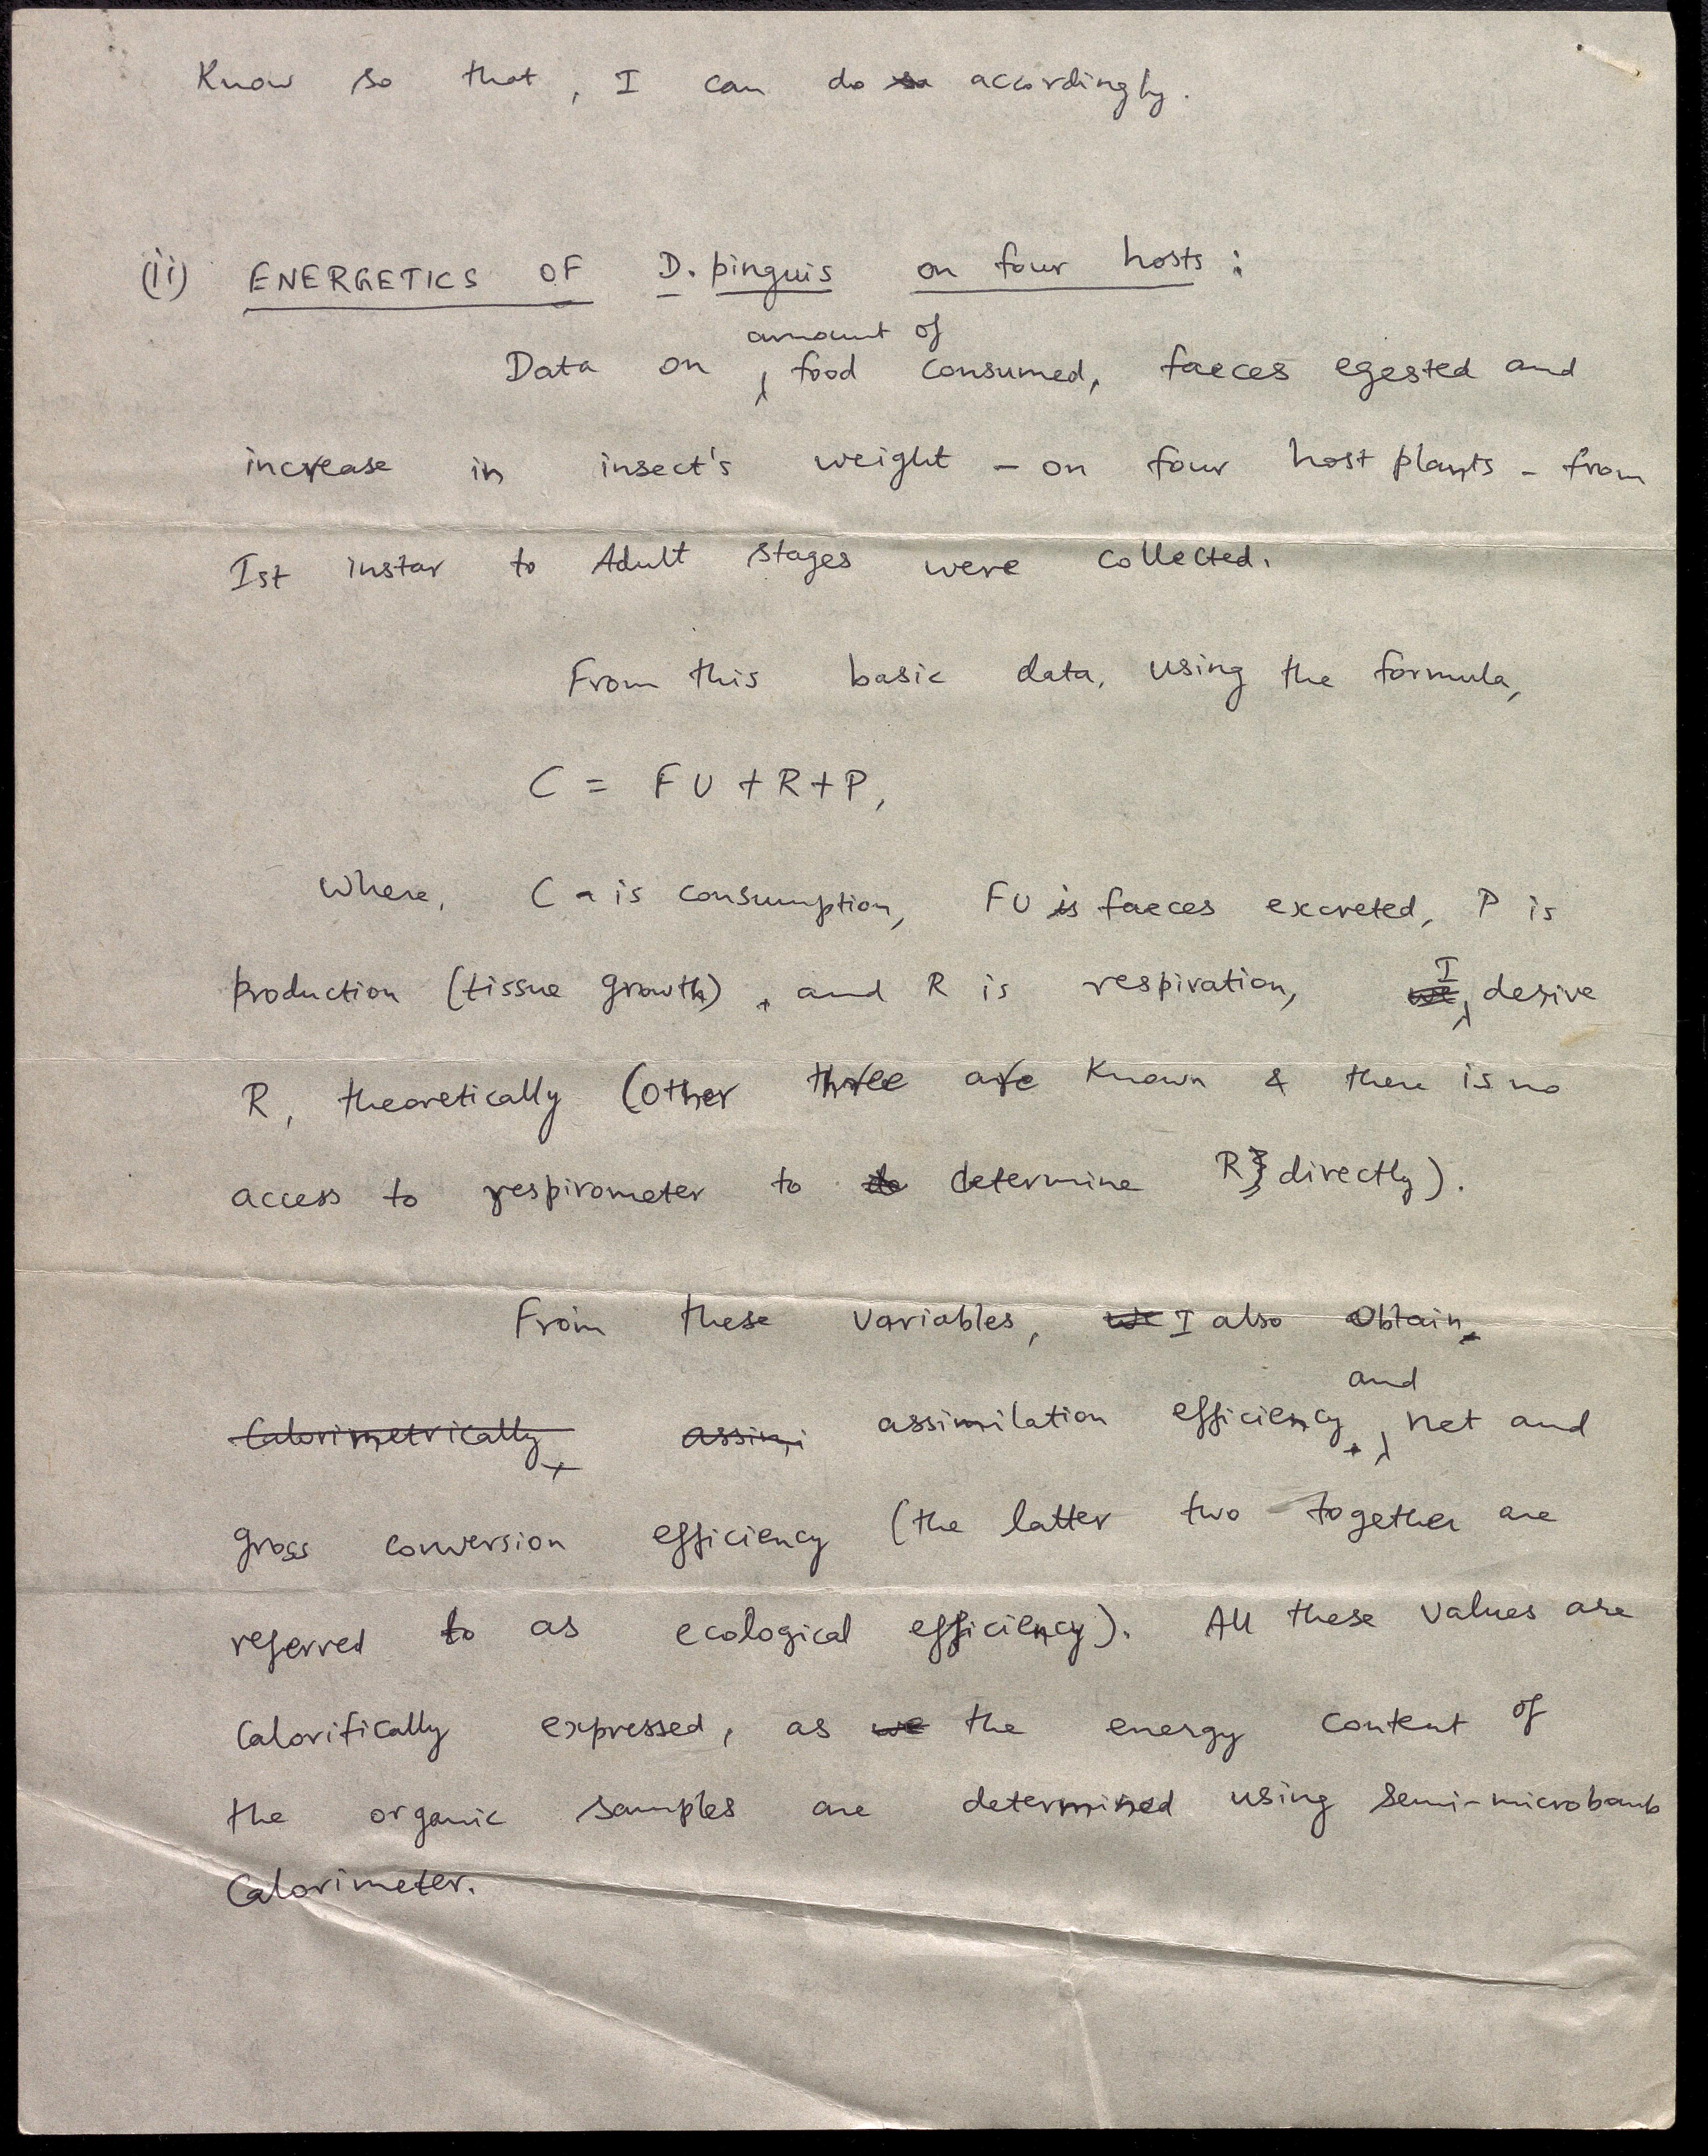 Know so that, I can do so accordingly.
(ii) ENERGETICS OF D. pinguis on four hosts :
amount of
Data on food consumed, faeces egested and
increase in insect's weight - on four host plants - from
Ist instar to Adult stages were collected.
From this basic data, using the formula,
C = FU + R + P,
Where, C - is consumption, FU is faeces excreted, P is
I
production (tissue growth), and R is respiration, we desire
R, theoretically (other three are known & there is no
access to respirometer to de determine R directly).
From these variables, we I also obtain
and
Calorimetrically, assimi assimilation efficiency, net and
gross conversion efficiency (the latter two together are
referred to as ecological efficiency). All these values are
Calorifically expressed, as we the energy content of
the organic samples are determined using semi-microbomb
Calorimeter.